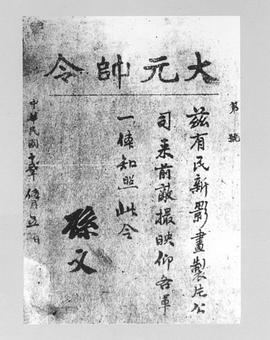 大元帥令
第 號
茲有民新影畫製片公
司來前敵撮映仰各軍
一体知照此令
孫文
中華民國十年 月 日